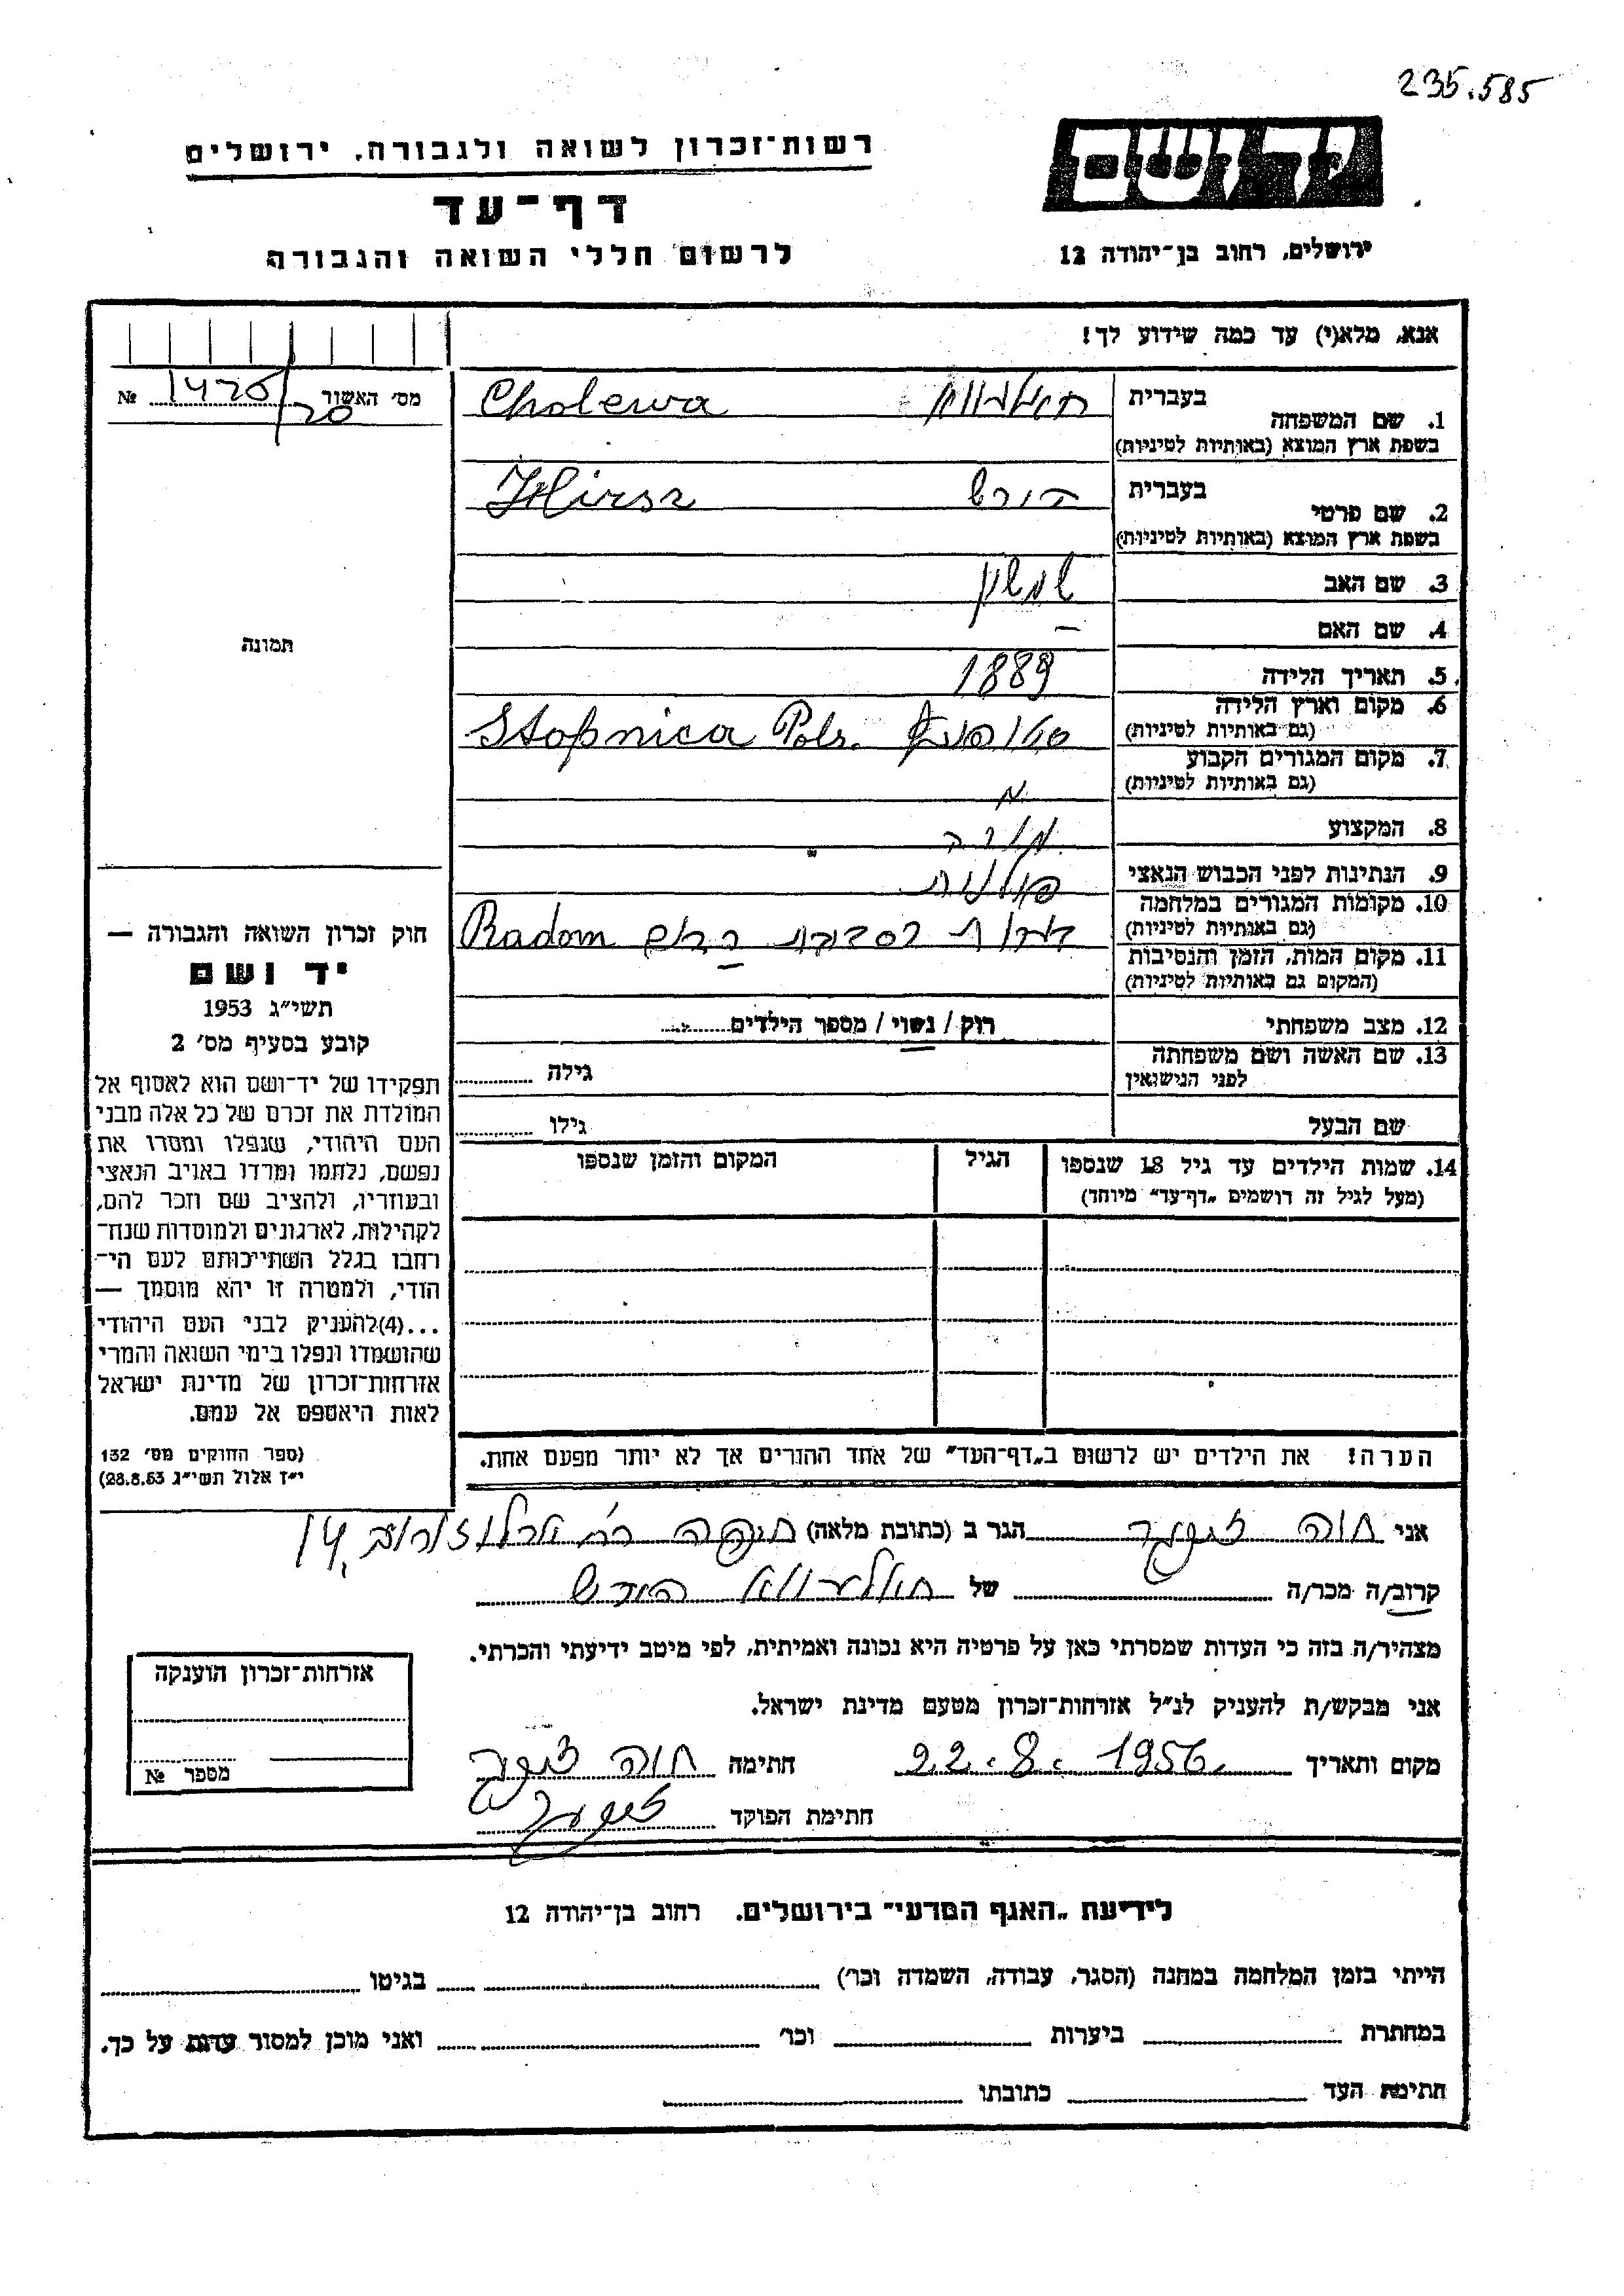 235.585
יד ושם
רשות־זכרון לשואה ולגבורה, ירושלים
דף־עד
לרשום חללי השואה והגבורה
ירושלים, רחוב בן־יהודה 12
אנא, מלא(י) עד כמה שידוע לך!
מס׳ האשור 1425/20 №
1. שם המשפחה
בעברית
Cholewa
בשפת ארץ המוצא (באותיות לטיניות)
2. שם פרטי
בעברית הירש
Hirsz
בשפת ארץ המוצא (באותיות לטיניות)
3. שם האב
4. שם האם –
5. תאריך הלידה 1889
6. מקום וארץ הלידה
(גם באותיות לטיניות)
Stopnica Pols.
7. מקום המגורים הקבוע
(גם באותיות לטיניות)
8. המקצוע מורה
9. הנתינות לפני הכבוש הנאצי פולנית
10. מקומות המגורים במלחמה
(גם באותיות לטיניות)
Radom
11. מקום המות, הזמן והנסיבות
(המקום גם באותיות לטיניות)
12. מצב משפחתי
רוק / נשוי / מספר הילדים
13. שם האשה ושם משפחתה
לפני הנישואין
גילה
שם הבעל
גילו
14. שמות הילדים עד גיל 18 שנספו
(מעל לגיל זה רושמים "דף־עד" מיוחד)
הגיל
המקום והזמן שנספו
הערה! את הילדים יש לרשום ב"דף־העד" של אחד ההורים אך לא יותר מפעם אחת.
תמונה
חוק זכרון השואה והגבורה —
יד ושם
תשי״ג 1953
קובע בסעיף מס׳ 2
תפקידו של יד־ושם הוא לאסוף אל
המולדת את זכרם של כל אלה מבני
העם היהודי, שנפלו ומסרו את
נפשם, נלחמו ומרדו באויב הנאצי
ובעוזריו, ולהציב שם וזכר להם,
לקהילות, לארגונים ולמוסדות שנח־
רחבו בגלל השתייכותם לעם הי־
הודי, ולמטרה זו יהא מוסמך —
...(4)להעניק לבני העם היהודי
שהושמדו ונפלו בימי השואה והמרי
אזרחות־זכרון של מדינת ישראל
לאות היאספם אל עמם.
(ספר החוקים מס׳ 132
י״ז אלול תשי״ג 28.8.53)
אני חוה
הגר ב (כתובת מלאה) חיפה רח׳ ארלוזורוב 14
קרוב/ה מכר/ה של חולעווא הירש
מצהיר/ה בזה כי העדות שמסרתי כאן על פרטיה היא נכונה ואמיתית, לפי מיטב ידיעתי והכרתי.
אני מבקש/ת להעניק לנ״ל אזרחות־זכרון מטעם מדינת ישראל.
מקום ותאריך 22.8.1956 חתימה חוה
חתימת הפוקד
אזרחות־זכרון הוענקה
מספר №
לידיעת "האגף המדעי" בירושלים, רחוב בן־יהודה 12
הייתי בזמן המלחמה במחנה (הסגר, עבודה, השמדה וכו׳) בגיטו
במחתרת ביערות וכו׳ ואני מוכן למסור עדות על כך.
חתימת העד כתובתו